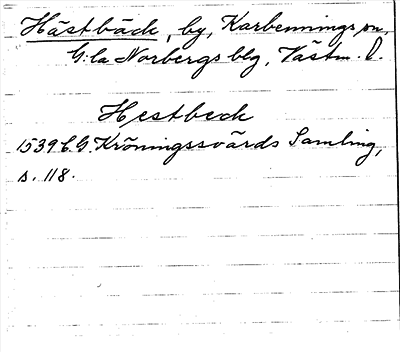 Hästbäck, by, Karbennings sn,
G:la Norbergs blg, Västm. l.
Hestbeck
1539 C. G. Kröningssvärds Samling,
s. 118.